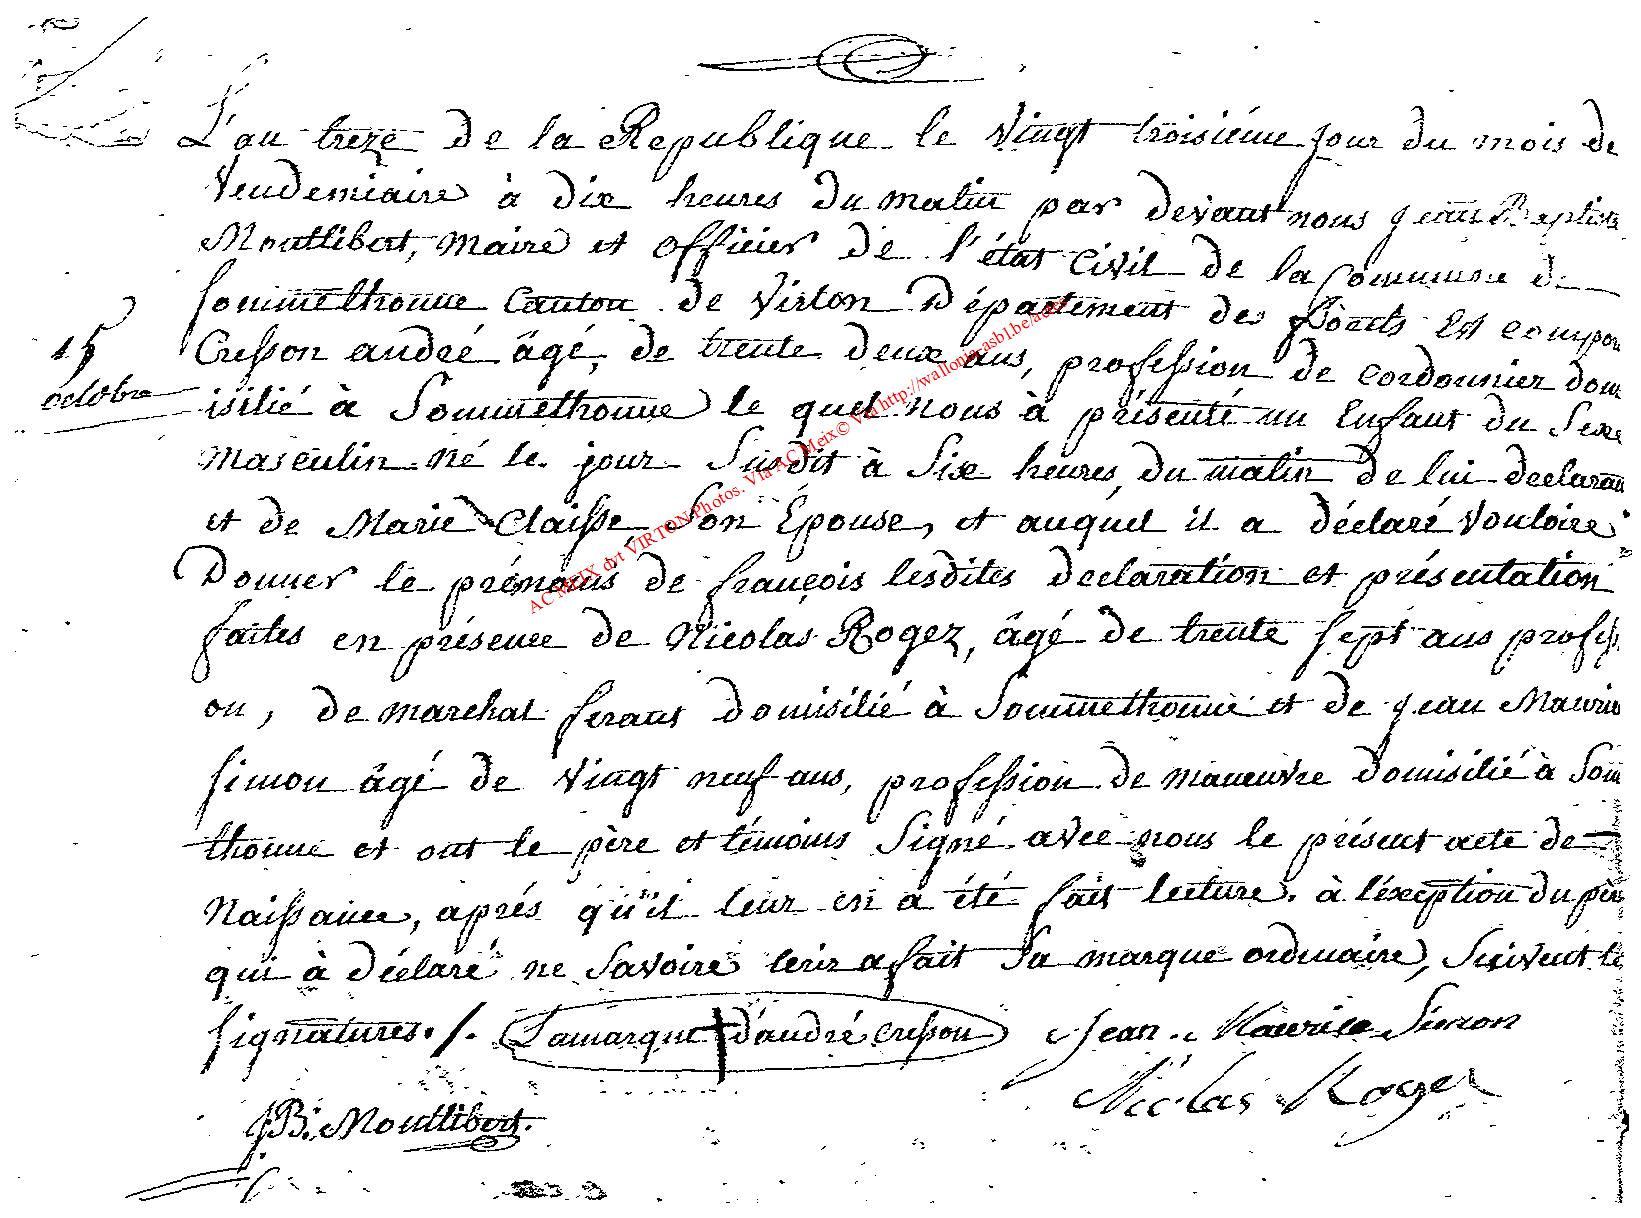 L'an treze de la Republique le vingt troisiéme jour du mois de
Vendemiaire à dix heures du matin par devant nous jean Baptiste
Montlibert, maire et officier de l'état civil de la Commune de
Sommethonne Canton de Virton Département des forêts Est compar
15
octobre
Cresson andré âgé, de trente deux ans, profession de cordonnier dom
isilié à Sommethonne le quel nous à présenté un Enfant du Sexe
masculin né le jour Susdit à Six heures du matin de lui declarant
et de Marie Claisse, Son Épouse, et auquel il a déclaré vouloire
Donner le prénoms de françois lesdites declaration et présentation
faites en présence de Nicolas Rogez, âgé de trente sept ans profess
on, de marchal ferant domisilié à Sommethonne et de jean Mauric
simon âgé de vingt neuf ans, profession de manœuvre domisilié à Som
thonne et ont le père et témoins Signé avec nous le présent acte de
Naissance, aprés qu'il leur en a été fait lecture. à l'éxception du père
qui à déclaré ne Savoire lerir a fait Sa marque ordinaire, Suivent le
signatures ./. La marque d'andré cresson Jean Maurice Simon
Nicolas Roger
JB. Montlibert.
AC MEIX dvt VIRTON Photos. Via AC Meix© Via http://wallonia-asbl.be/actes